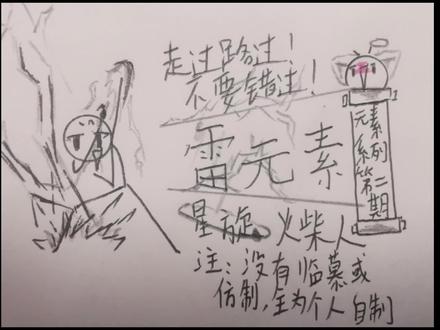 走过路过！
不要错过！
雷元素
元素系列第二期
星旋火柴人
注：没有临慕或
仿制，主为个人自制